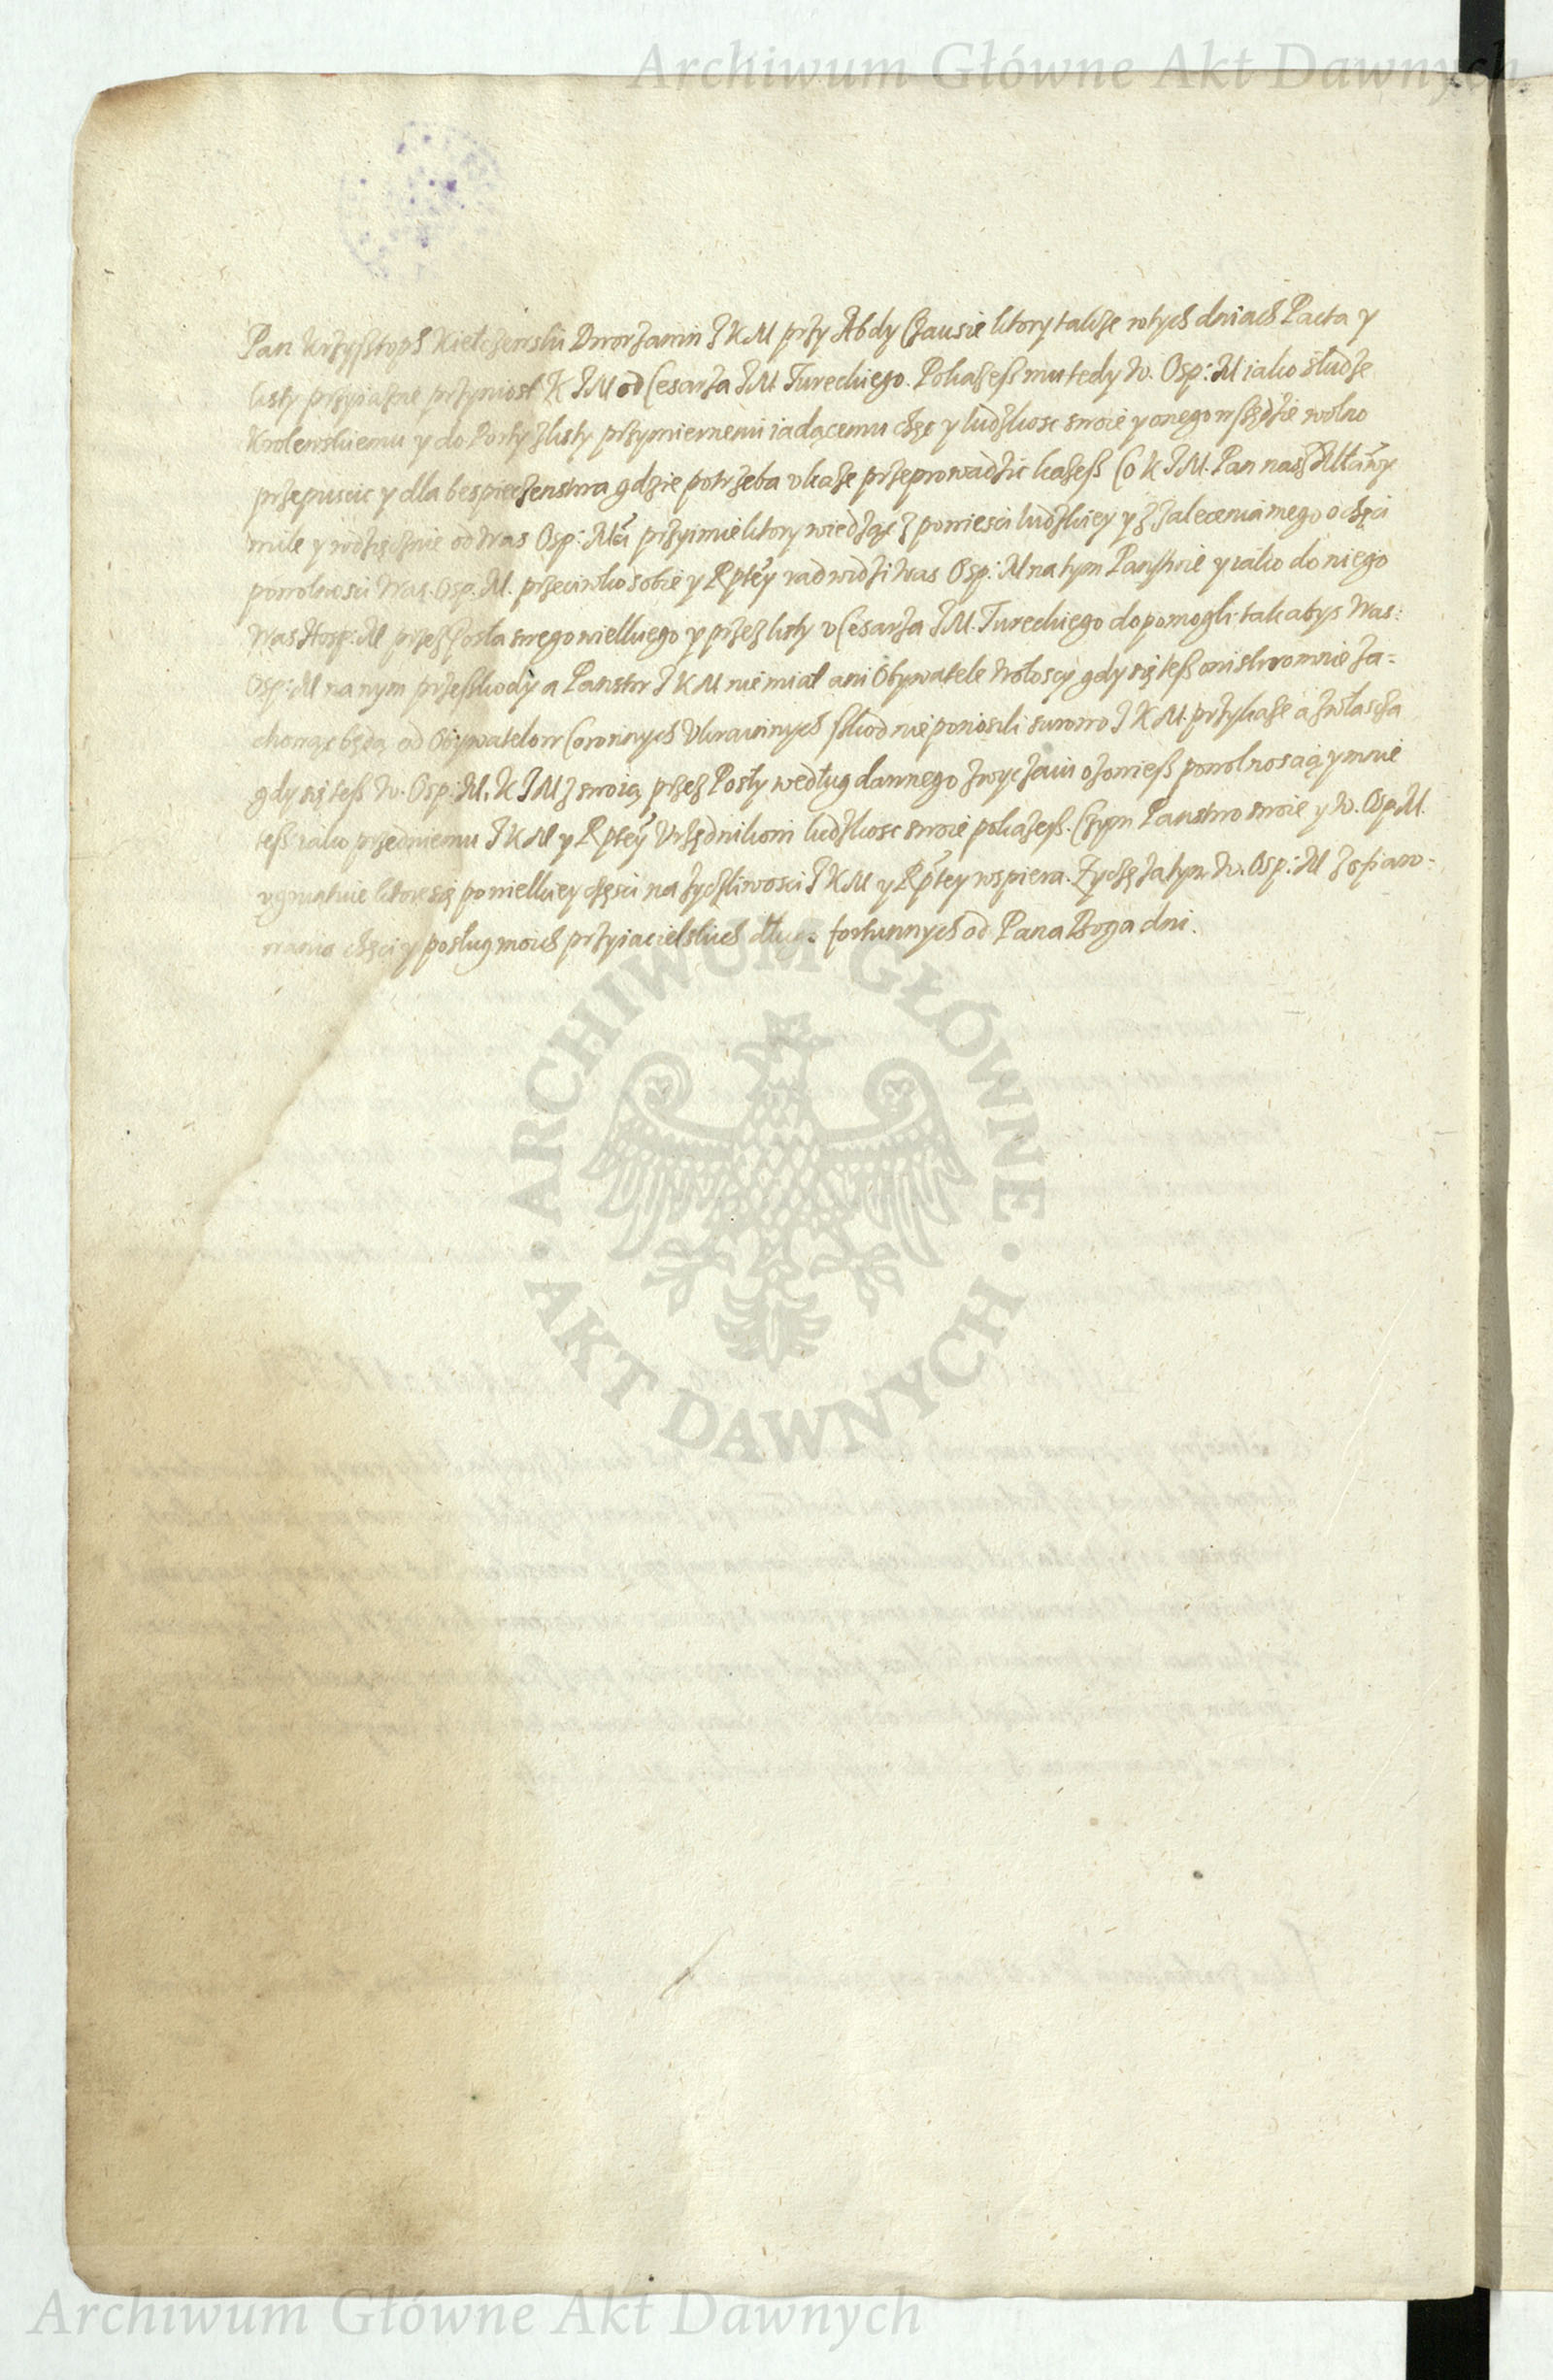 Archiwum Główne Akt Dawnych
Pan Krzysztoph Kiełczewski Dworzanin J K M przy Abdy Czausie ktory takze w tych dniach Pacta y
listy przyiazne przyniosł K J M od Cesarza J M Tureckiego. Pokazesz mu tedy W. Osp: M iako słudze
Krolewskiemu y do Porty z listy przymiernemi iadącemu chęć y ludzkosc swoię y onego wszędzie wolno
przepuscic y dla bespieczenstwa gdzie potrzeba ukaze przeprowadzic kazesz Co K J M. Pan nasz Młczwy
mile y wdzięcznie od Was Osp: Mci przyimie ktory wiedząc z powiesci ludzkiey y z zalecenia mego o chęci
powolnosci Was. Osp. M. przeciwko sobie y Rptey rad widzi Was Osp: M na tym Panstwie y iako do niego
Was Hosp: M przez Posła swego wielkiego y przez listy u Cesarza J M. Tureckiego dopomogli tak abys Was:
Osp: M na nym przeszkody a Panstw J K M nie miał ani Obywatele Wołoscy gdy się tesz oni skromnie za=
chowąc będą od Obywatelow Coronnych Ukrainnych szkod nie ponosili surowo J K M. przykaze a zwłascza
gdy się tesz W. Osp: M. K J M z swoią przez Posły według dawnego zwyczaiu ozowiesz powolnoscią y mnie
tesz iako przedniemu J K M y Rptey Urzędnikowi ludzkosc swoię pokazesz. Czym Panstwo swoie y W. Osp M.
ugruntuie ktore się po wielkiey częsci na zyczliwosci J K M y Rptey wspiera. Zyczę zatym W. Osp: M z ofiaro-
wanio chęci y posług moich przyiacielskich długo fortunnych od Pana Boga dni.
ARCHIWUM GŁÓWNE · AKT DAWNYCH ·
Archiwum Główne Akt Dawnych